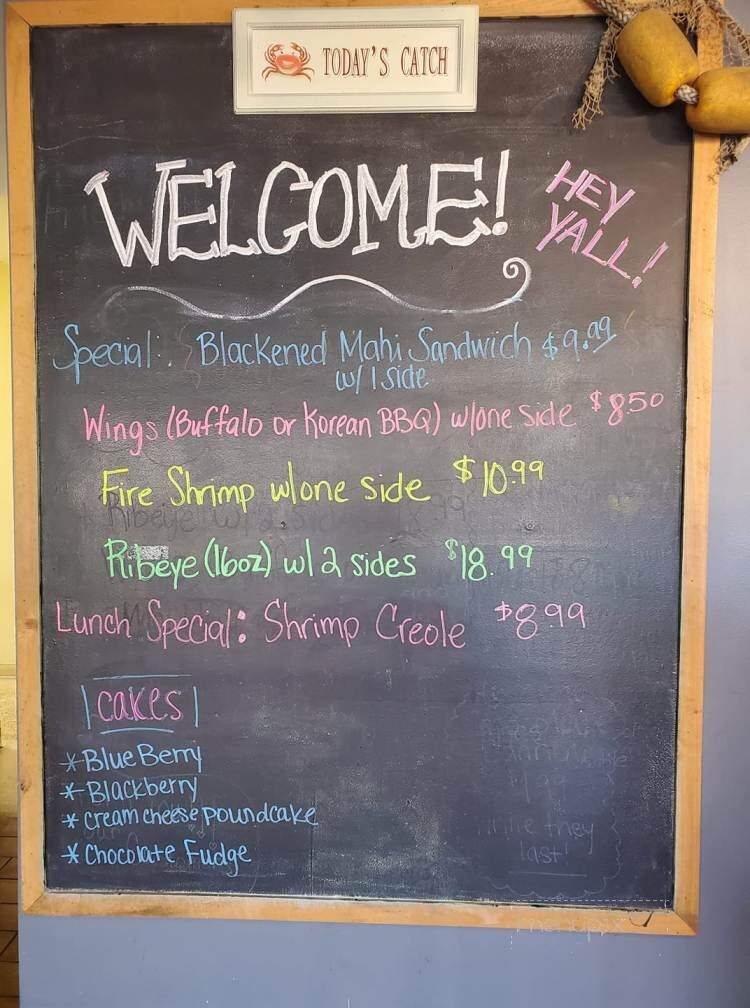 TODAY'S CATCH
WELCOME!
HEY
YALL!
Special: Blackened Mahi Sandwich $9.99
w/ 1 side
Wings (Buffalo or Korean BBQ) w/one side $8.50
Fire Shrimp w/one side $10.99
Ribeye (16oz) w/ 2 sides $18.99
Lunch Special: Shrimp Creole $8.99
cakes
* Blue Berry
* Blackberry
* cream cheese poundcake
* Chocolate Fudge
they
last!